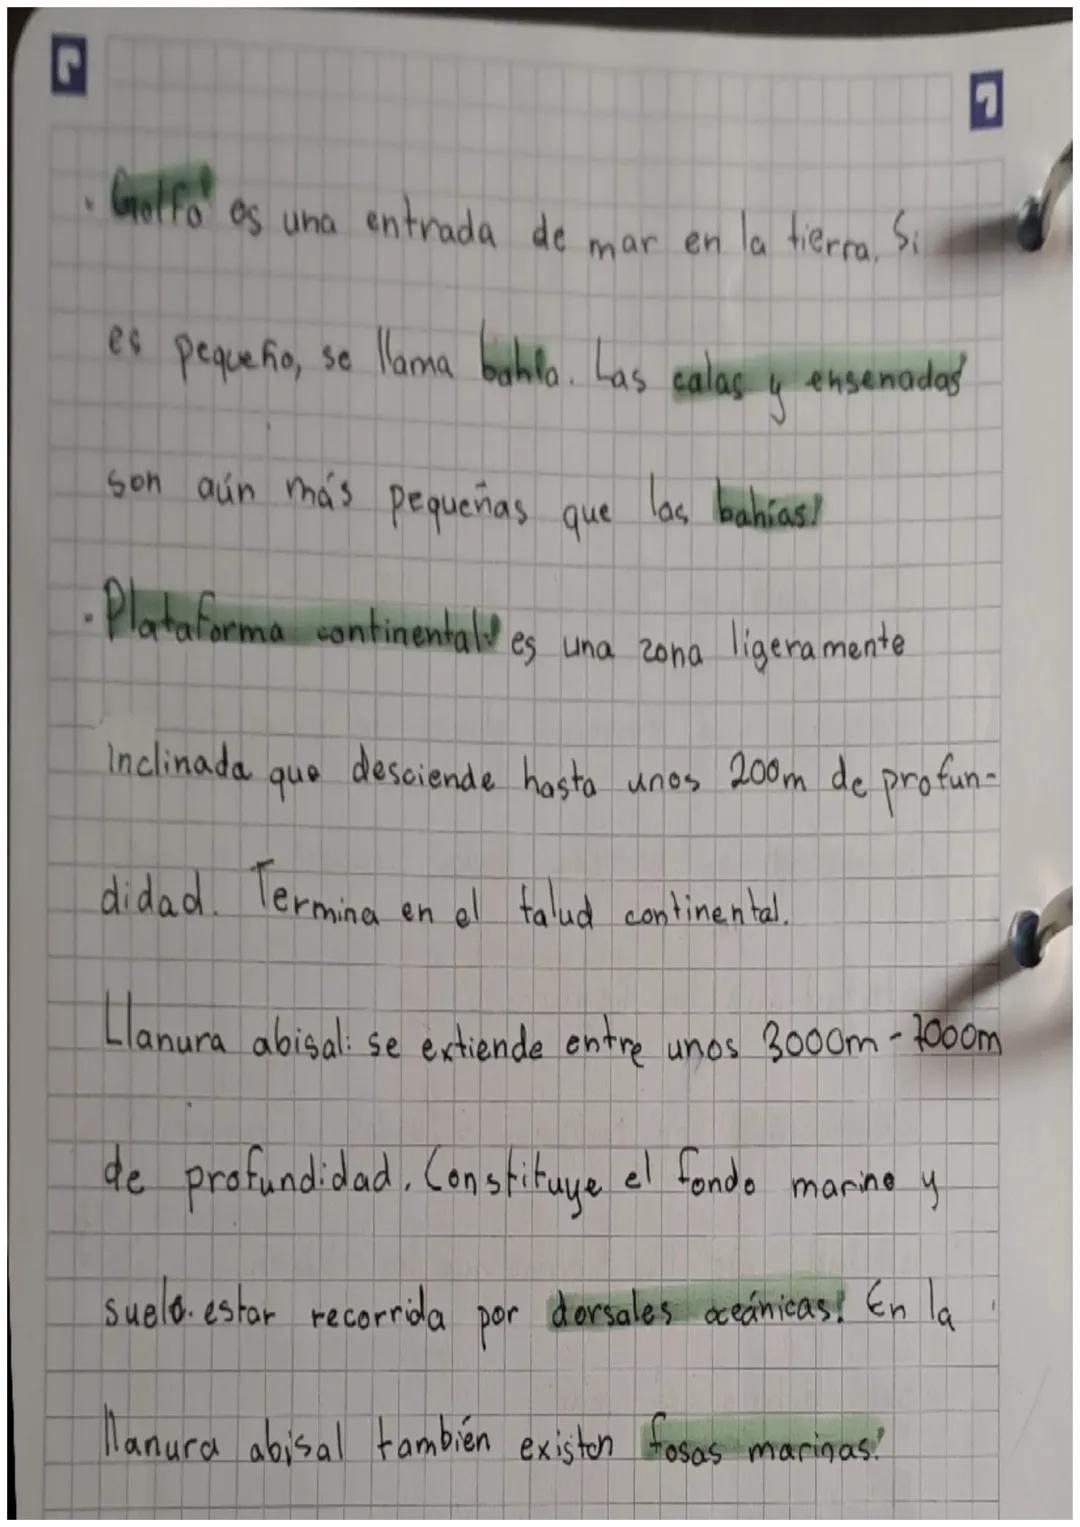 · Golfo: es una entrada de mar en la tierra. Si
es pequeño, se llama bahía. Las calas y ensenadas
son aún más pequeñas que las bahías!
· Plataforma continental: es una zona ligeramente
Inclinada que desciende hasta unos 200m de profun-
didad. Termina en el talud continental.
Llanura abisal: se extiende entre unos 3000m - 7000m
de profundidad. Constituye el fondo marino y
suele estar recorrida por dorsales oceánicas! En la
llanura abisal también existen fosas marinas!